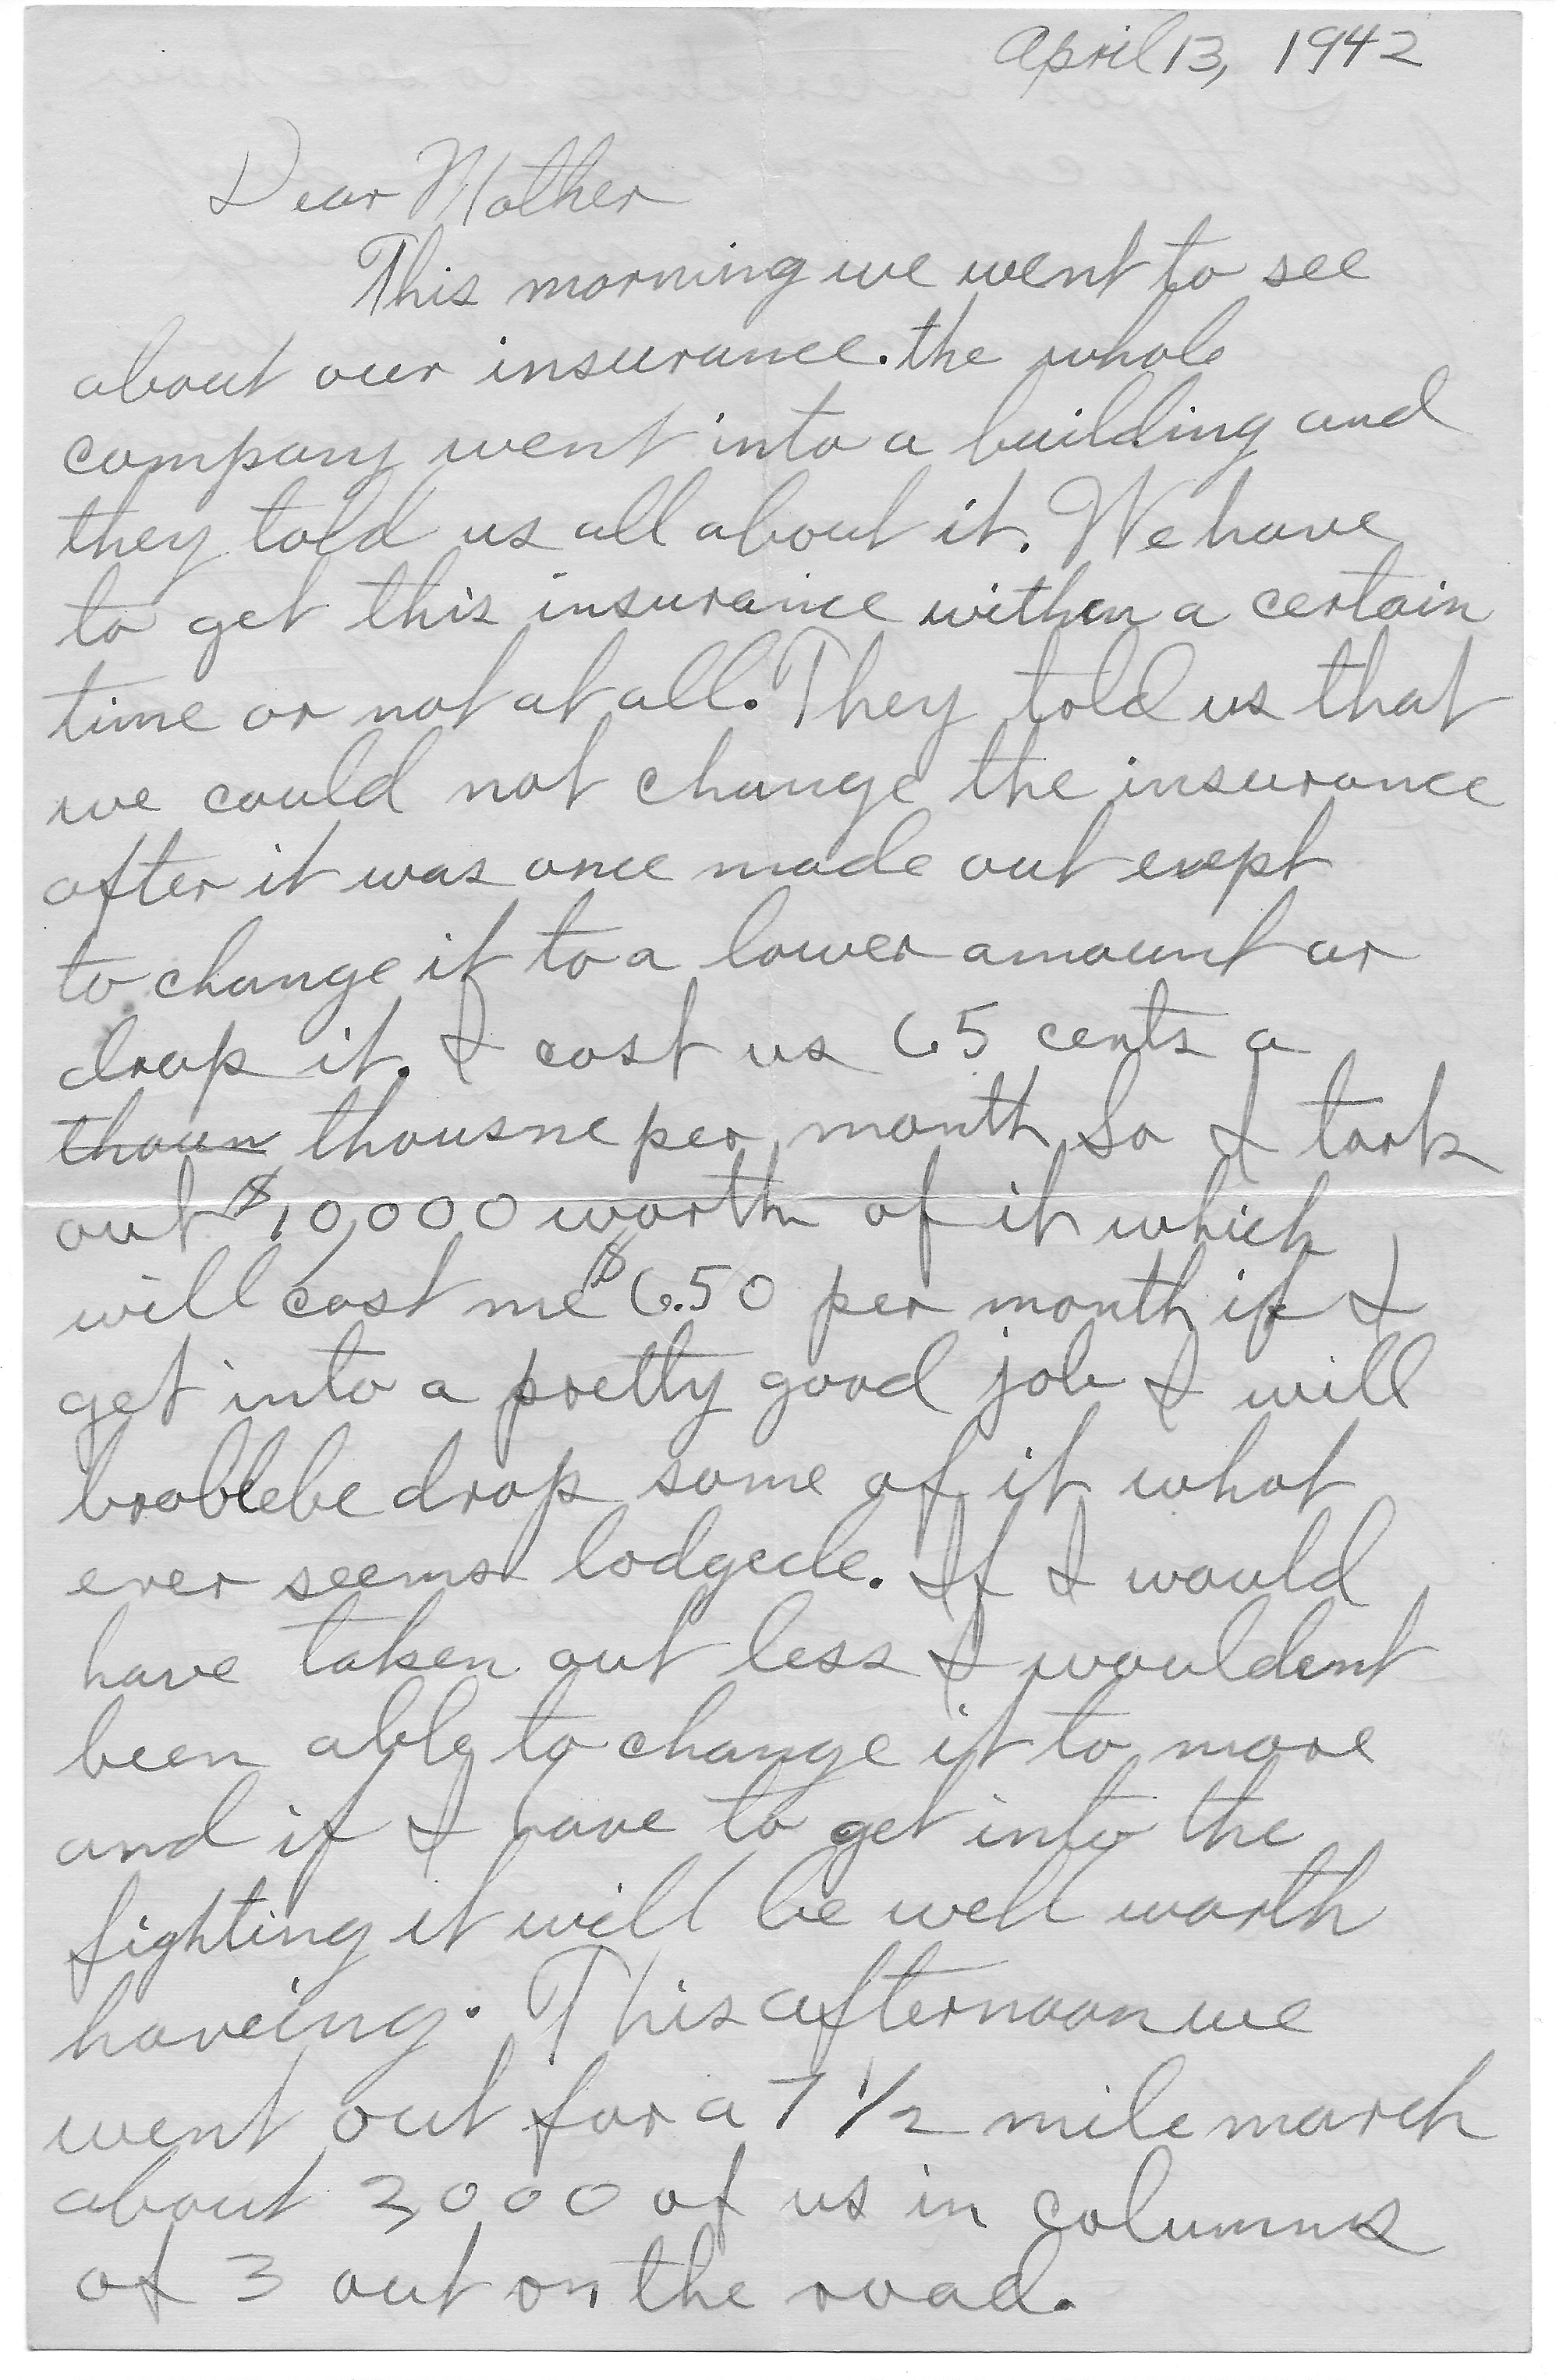 April 13, 1942
Dear Mother
This morning we went to see
about our insurance. the whole
company went into a building and
they told us all about it. We have
to get this insurance within a certain
time or not at all. They told us that
we could not change the insurance
after it was once made out exept
to change it to a lower amount or
drop it. I cost us 65 cents a
thoun thousne per month So I took
out $10,000 worth of it which
will cost me $6.50 per month if I
get into a pretty good job I will
broblebe drop some of it what
ever seems lodgecle. If I would
have taken out less I wouldent
been able to change it to more
and if I have to get into the
fighting it will be well worth
haveing. This afternoon we
went out for a 7 1/2 mile march
about 2,000 of us in columns
of 3 out on the road.